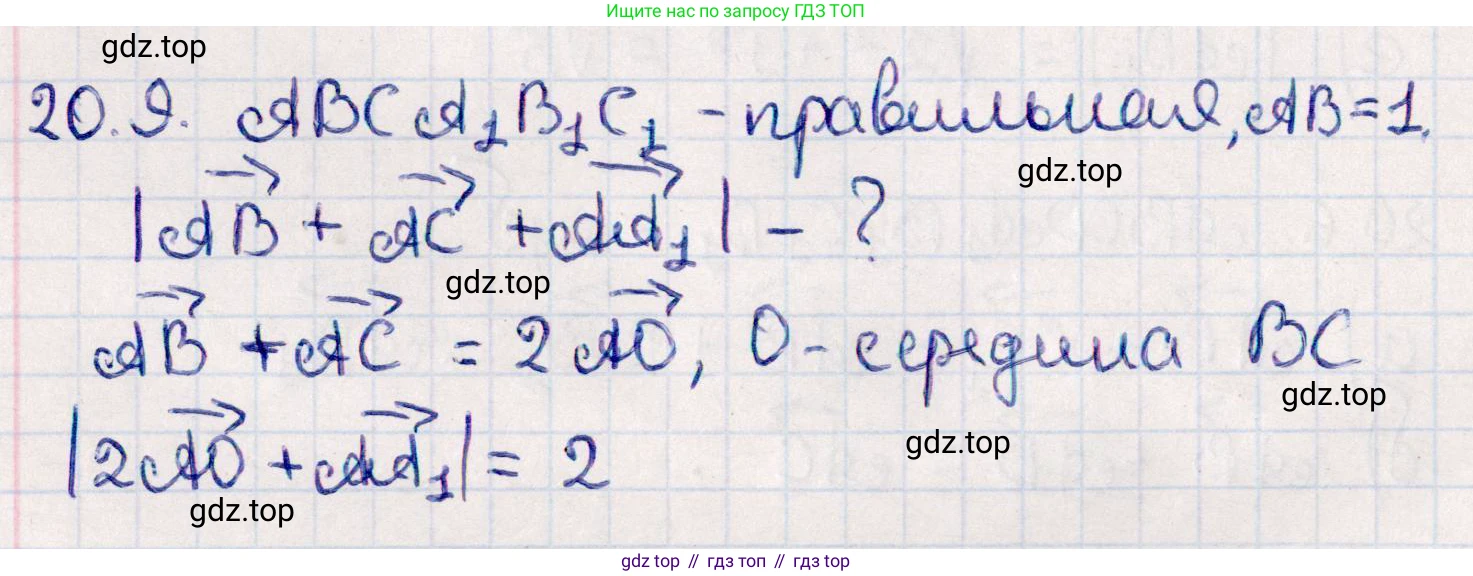 Ищите нас по запросу ГДЗ ТОП
gdz.top
20.9. ABCA₁B₁C₁ - правильная, AB=1.
gdz.top
|AB + AC + AA₁| - ?
gdz.top
AB + AC = 2AO, O - середина BC
gdz.top
gdz.top
|2AO + AA₁| = 2
gdz.top
gdz top // гдз топ // gdz top